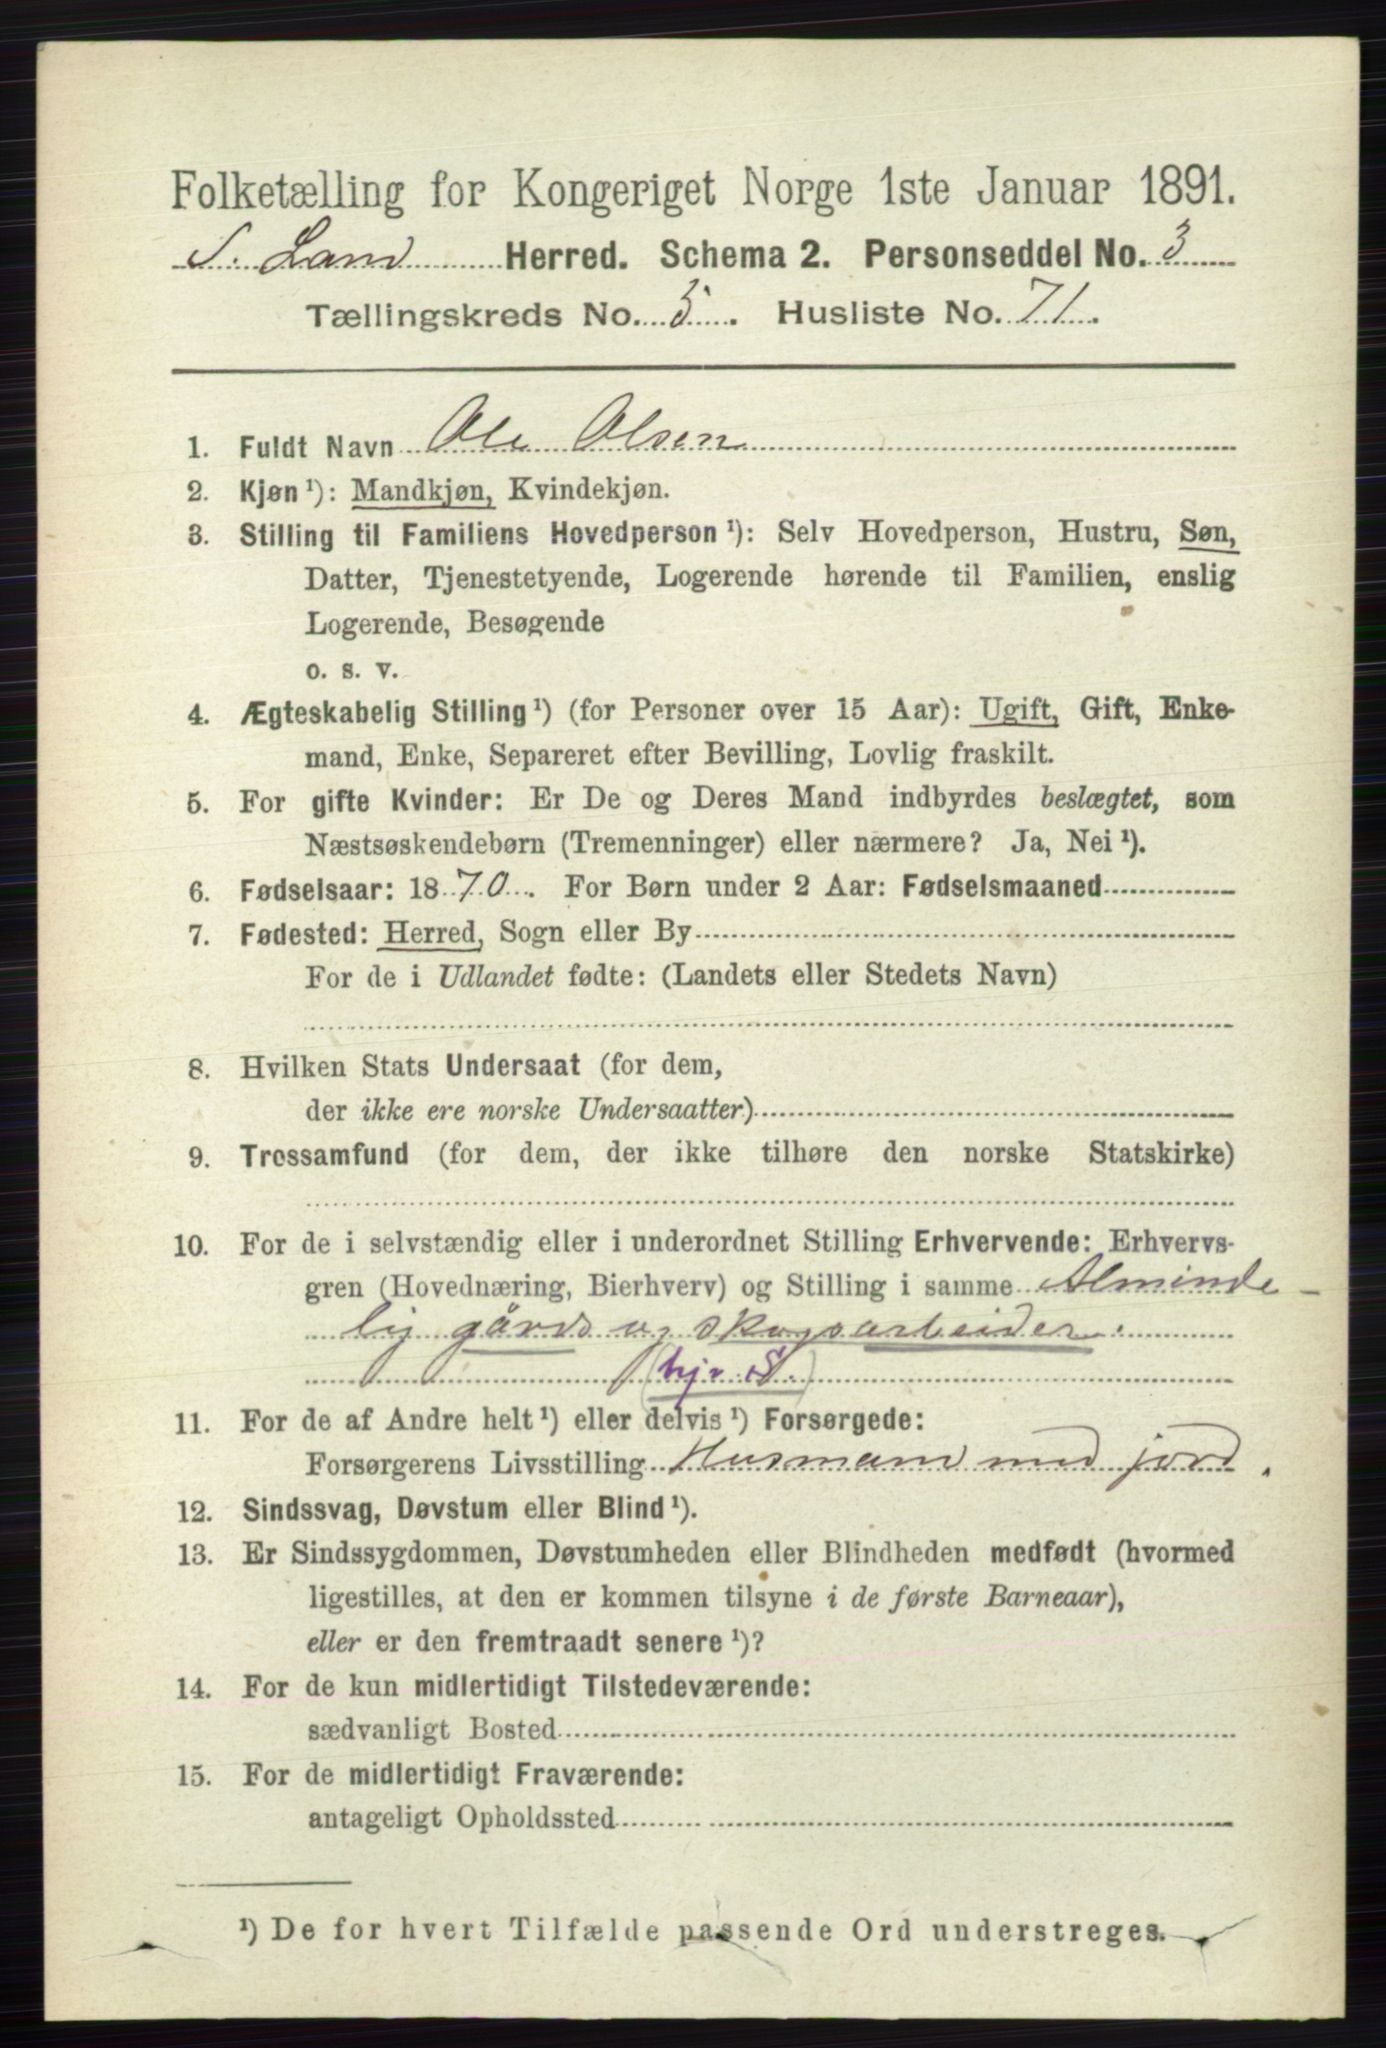 Folketælling for Kongeriget Norge 1ste Januar 1891.
S. Land Herred. Schema 2. Personseddel No. 3
Tællingskreds No. 5. Husliste No. 71.
1. Fuldt Navn Ole Olsen
2. Kjøn ¹): Mandkjøn, Kvindekjøn.
3. Stilling til Familiens Hovedperson ¹): Selv Hovedperson, Hustru, Søn,
Datter, Tjenestetyende, Logerende hørende til Familien, enslig
Logerende, Besøgende
o. s. v.
4. Ægteskabelig Stilling ¹) (for Personer over 15 Aar): Ugift, Gift, Enke-
mand, Enke, Separeret efter Bevilling, Lovlig fraskilt.
5. For gifte Kvinder: Er De og Deres Mand indbyrdes beslægtet, som
Næstsøskendebørn (Tremenninger) eller nærmere? Ja, Nei ¹).
6. Fødselsaar: 1870. For Børn under 2 Aar: Fødselsmaaned
7. Fødested: Herred, Sogn eller By
For de i Udlandet fødte: (Landets eller Stedets Navn)
8. Hvilken Stats Undersaat (for dem,
der ikke ere norske Undersaatter)
9. Trossamfund (for dem, der ikke tilhøre den norske Statskirke)
10. For de i selvstændig eller i underordnet Stilling Erhvervende: Erhvervs-
gren (Hovednæring, Bierhverv) og Stilling i samme Alminde-
lig gårds og skogsarbeider.
(hjv S.)
11. For de af Andre helt ¹) eller delvis ¹) Forsørgede:
Forsørgerens Livsstilling Husmand med jord.
12. Sindssvag, Døvstum eller Blind ¹).
13. Er Sindssygdommen, Døvstumheden eller Blindheden medfødt (hvormed
ligestilles, at den er kommen tilsyne i de første Barneaar),
eller er den fremtraadt senere ¹)?
14. For de kun midlertidigt Tilstedeværende:
sædvanligt Bosted
15. For de midlertidigt Fraværende:
antageligt Opholdssted
¹) De for hvert Tilfælde passende Ord understreges.